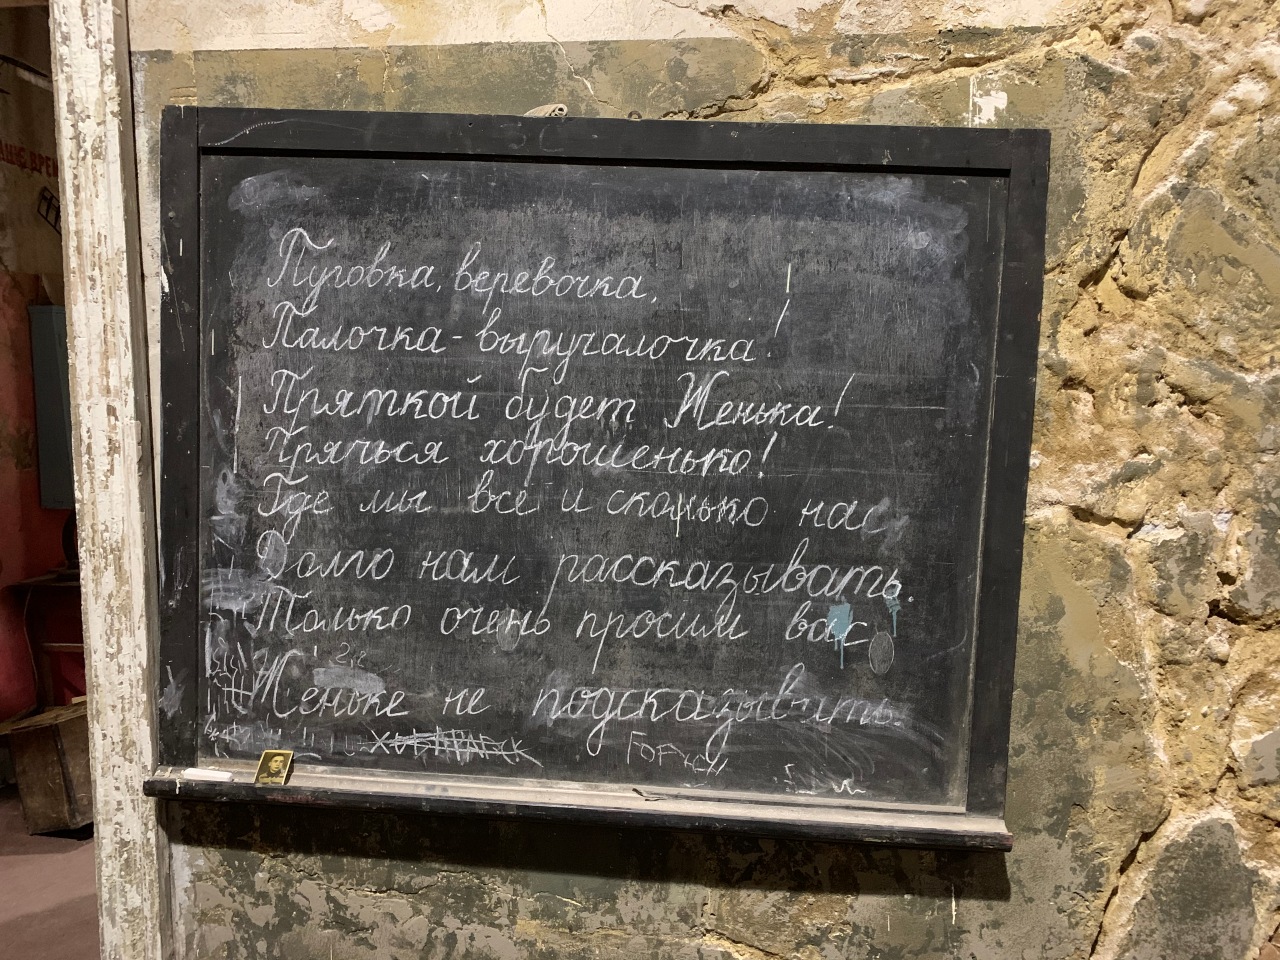 Пуговка, веревочка,
Палочка-выручалочка!
Пряткой будет Женька!
Прячься хорошенько!
Где мы все и сколько нас
Долго нам рассказывать.
Только очень просим вас
Женьке не подсказывать.